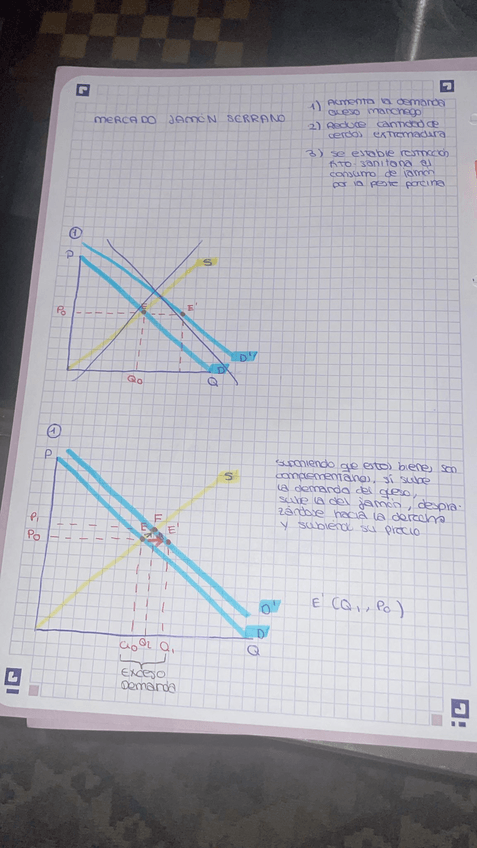 MERCADO JAMÓN SERRANO
1) Aumenta la demanda
queso manchego
2) Reduce cantidad de
cerdos extremadura
3) se estable restricción
fito-sanitaria al
consumo de jamón
por la peste porcina
1
P
S
P0
E
E'
D'
D
Q0
Q
1
P
S
P1
P0
F
E
E'
D'
D
Q0 Q2 Q1
Q
Exceso
Demanda
suponiendo qe estos bienes son
complementarios, si sube
la demanda del qeso,
sube la del jamón, despla-
zándose hacia la derecha
y subiendo su precio
E' (Q1, P0)